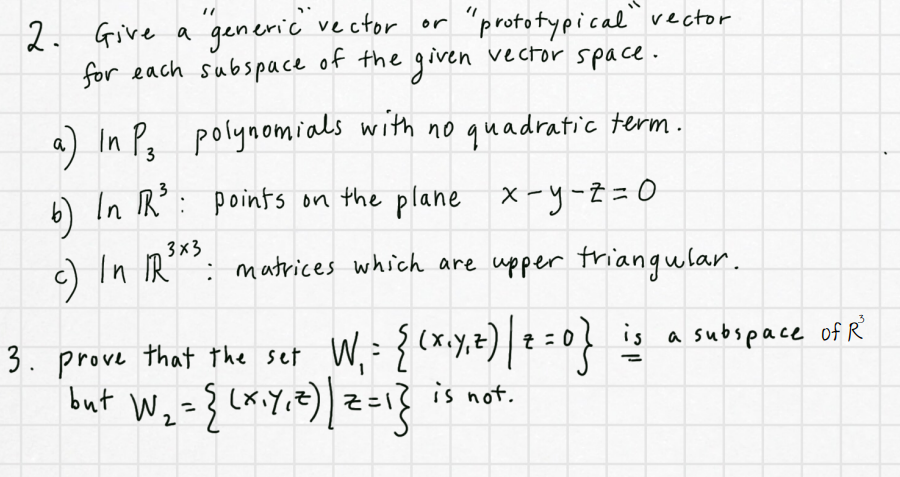 2. Give a "generic" vector or "prototypical" vector
for each subspace of the given vector space.
a) In P₃ polynomials with no quadratic term.
b) In ℝ³: points on the plane x-y-z=0
c) In ℝ³ˣ³: matrices which are upper triangular.
3. prove that the set W₁={(x,y,z)|z=0} is a subspace of R³
but W₂={(x,y,z)|z=1} is not.